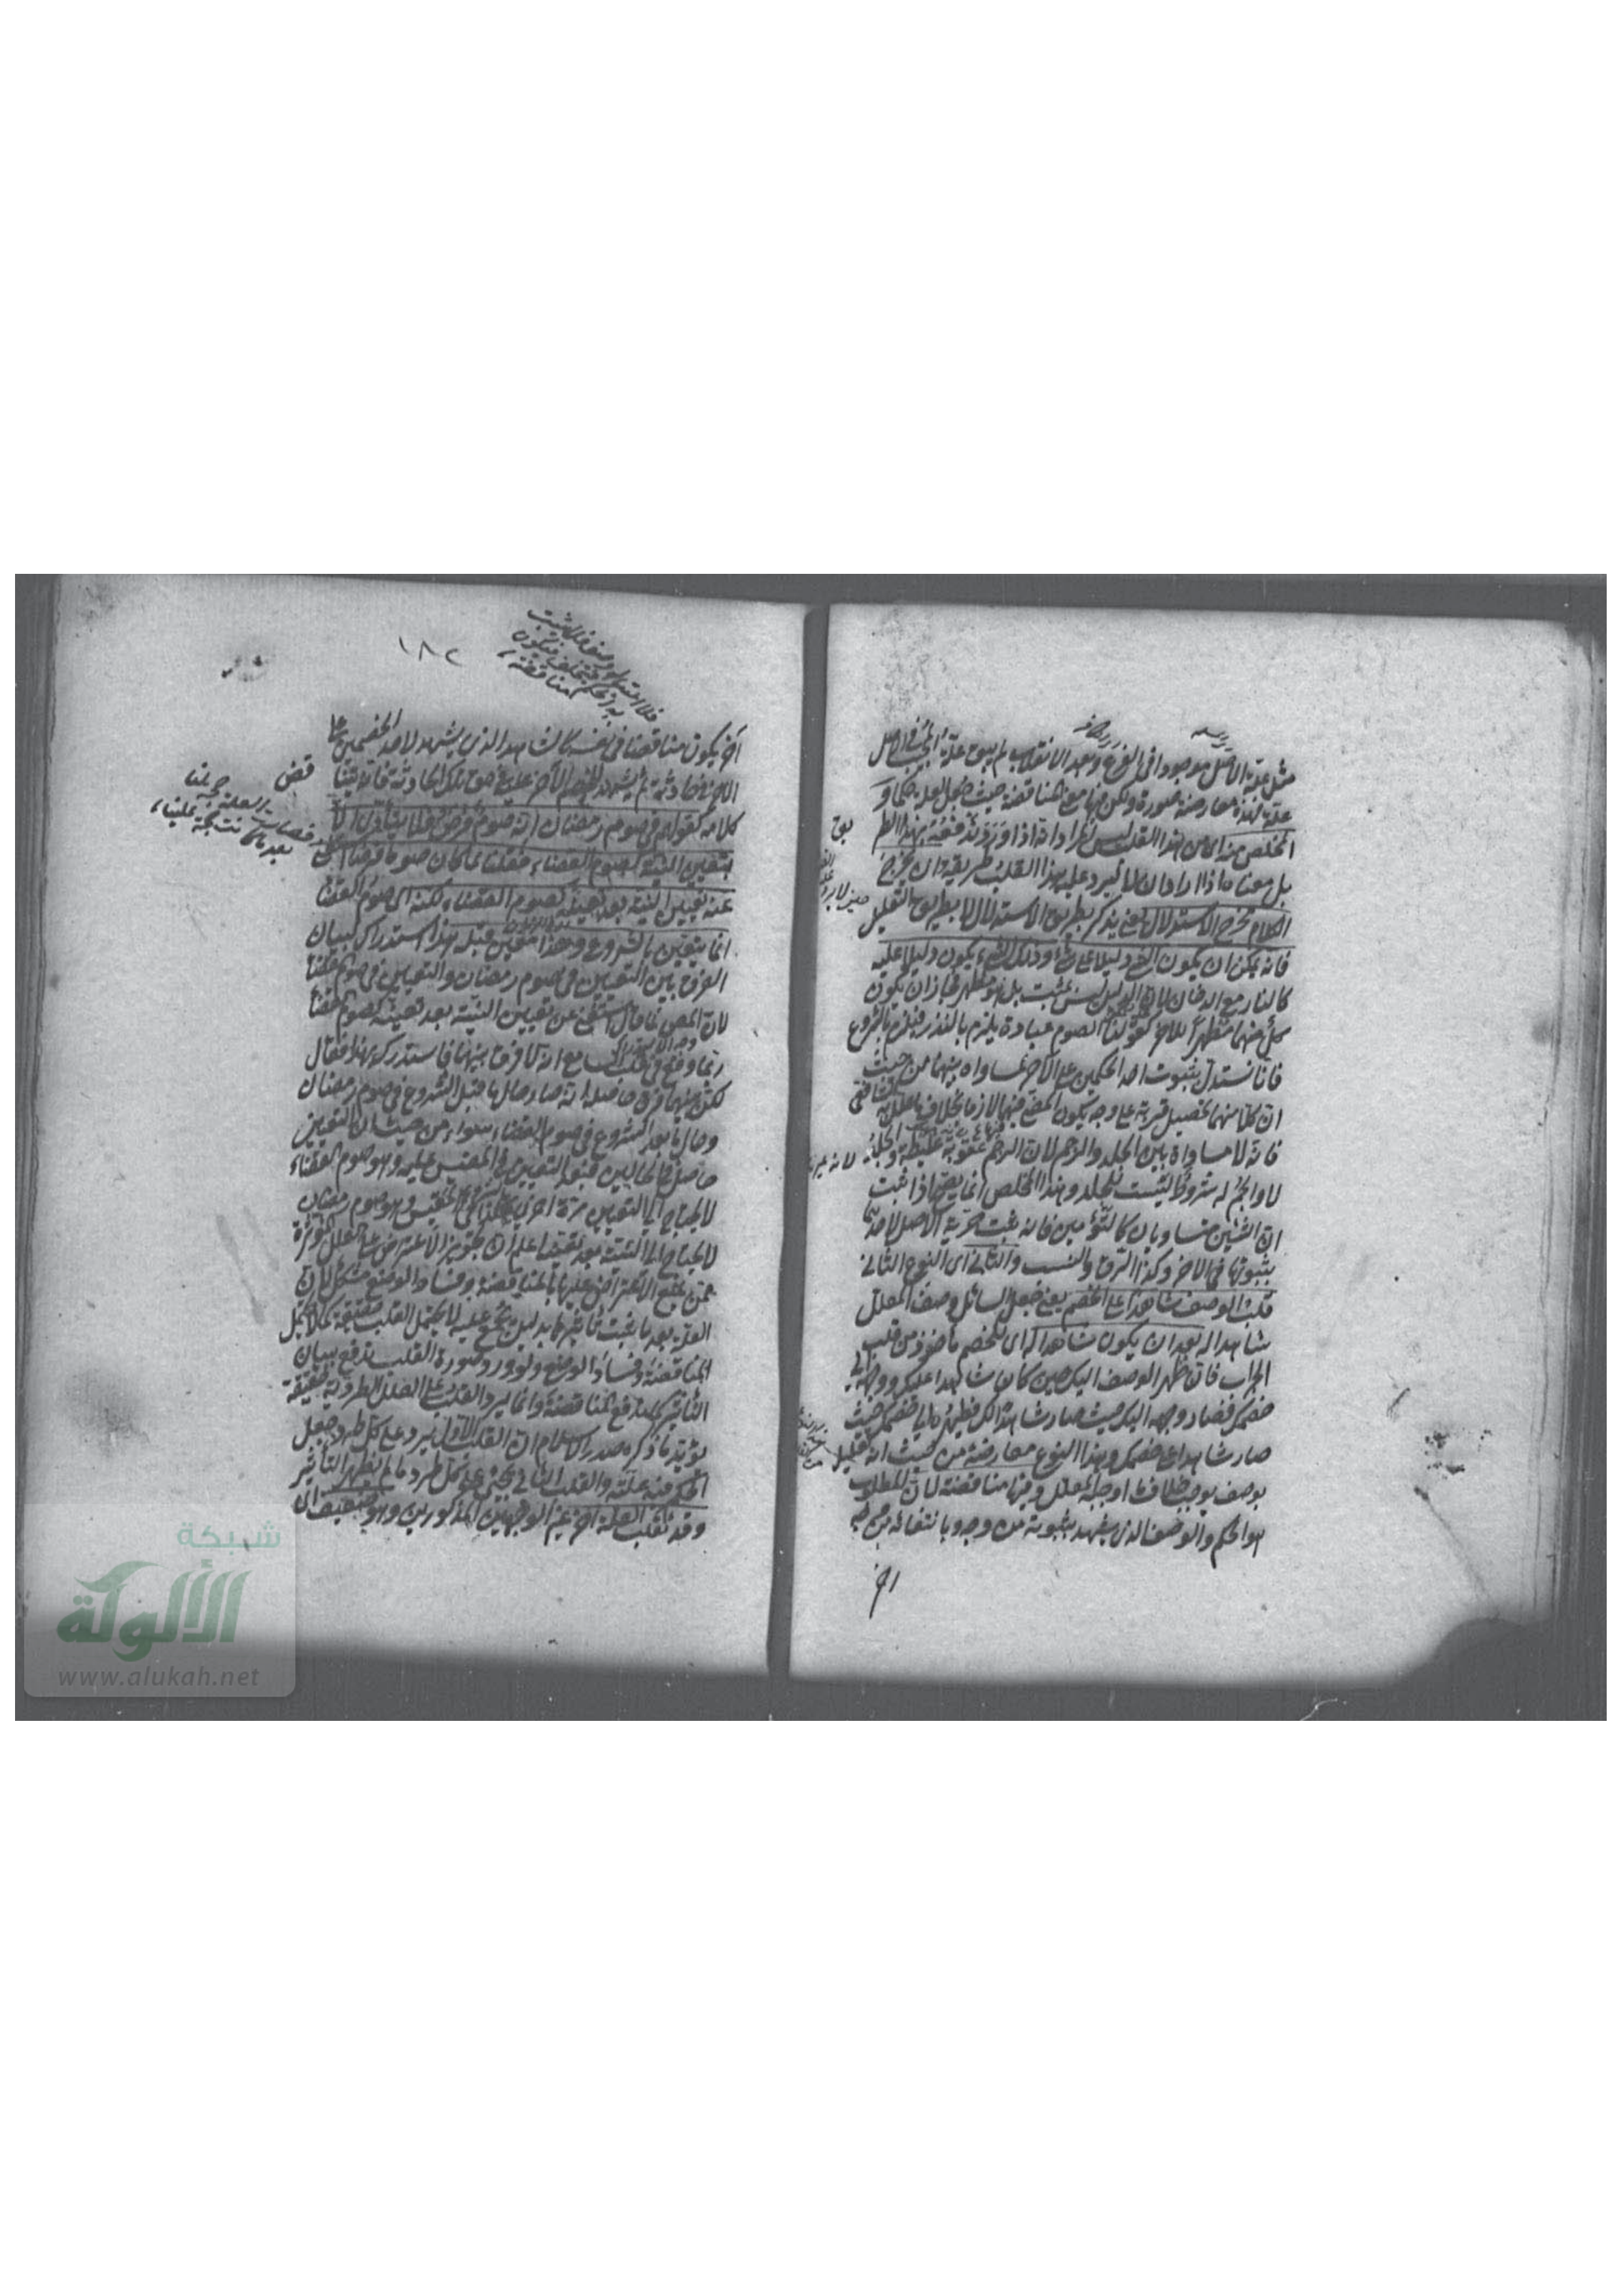 مثل علة الاصل موجودا في الفرع وبعد الانقلاب لم يبق علة المجيب في الاصل
علة فهذه معارضة صورة ولكن فيها معنى المناقضة حيث جعل العلة حكما و
المخلص منه اى من هذا القلب ليس المراد انه اذا ورد تدفعه بهذا الطريق
بل معناه اذا اراد ان لا يرد عليه هذا القلب فطريقه ان يخرج
الكلام مخرج الاستدلال يعنى يذكر بطريق الاستدلال لا بطريق التعليل
فانه يمكن ان يكون الشئ دليلا على شئ وذلك الشئ يكون دليلا عليه
كالنار مع الدخان لان الدليل ليس بمثبت بل هو مظهر فجاز ان يكون
كل منهما مظهرا للاخر كقولنا الصوم عبادة يلزم بالنذر فيلزم بالشروع
فانا نستدل بثبوت احد الحكمين على الآخر لمساواة بينهما من حيث
ان كلا منهما تحصيل قربة على وجه يكون المضى فيها لازما بخلاف ما علل به الشافعى
فانه لا مساواة بين الجلد والرجم لان الرجم عقوبة غليظة والجلد
لا والرجم له شروط ليست للجلد وهذا المخلص انما يصح اذا ثبت
ان الشيئين متساويان كالتوأمين فانه يثبت حرية الاصل لاحدهما
بثبوتها فى الاخر وكذا الرق والنسب والثانى اى النوع الثانى
قلب الوصف شاهدا على الخصم يعنى جعل السائل وصف المعلل
شاهدا له بعد ان يكون شاهدا له اى للخصم ماخوذ من قلب
الجراب فان ظهر الوصف اليك حين كان شاهدا عليك ووجهه الى
خصمك فصار وجهه اليك حيث صار شاهدا لك فظهره الى خصمك حيث
صار شاهدا على خصمك وهذا النوع معارضة من حيث انه تعليل
بوصف يوجب خلاف ما اوجبه المعلل وفيها مناقضة لان المطلوب
هو الحكم والوصف الذى يشهد بثبوته من وجه وبانتفائه من وجه
اخر
١٨٢
آخر يكون مناقضا فى نفسه كالشاهد الذى يشهد لاحد الخصمين على
الاخر فى حادثة ثم يشهد للخصم الآخر عليه فى حق تلك الحادثة فانه يتناقض
كلامه كقولهم فى صوم رمضان انه صوم فرض فلا يتأدى الا
بتعيين النية كصوم القضاء فقلنا لما كان صوما فرضا استغنى
عنه تعيين النية بعد تعينه كصوم القضاء لكنه اى صوم القضاء
انما يتعين بالشروع وهذا متعين قبله هذا استدراك لبيان
الفرق بين التعيين فى صوم رمضان والتعيين فى صوم القضاء
لان المعترض لما قال استغنى عن تعيين النية بعد تعينه كصوم القضاء
ربما وقع فى قلب السامع انه لا فرق بينهما فاستدركه بهذا فقال
لكن بينهما فرق حاصله انه صار حال ما قبل الشروع فى صوم رمضان
وحال ما بعد الشروع فى صوم القضاء سواء من حيث ان التعيين
حاصل فى الحالين فبعد التعيين فى المقيس عليه وهو صوم القضاء
لا يحتاج الى التعيين مرة اخرى فكذا فى المقيس وهو صوم رمضان
لا يحتاج الى النية بعد تعينه اعلم ان تجويز الاعتراض على العلل المؤثرة
ممن يمنع الاعتراض عليها بالمناقضة وفساد الوضع مشكل لان
العلة بعد ما ثبت تأثيرها بدليل مجمع عليه لا يحتمل القلب حقيقة كما لا يحتمل
المناقضة وفساد الوضع ولو ورد صورة القلب تدفع ببيان
التأثير كما يدفع المناقضة وانما يرد القلب على العلل الطردية حقيقة
يؤيد ما ذكره صدر الاسلام ان القلب الاول يرد على كل طرد جعل
الحكم فيه علة والقلب الثانى يجئ على كل طرد ما لم يظهر التأثير
وقد تقلب العلة من غير الوجهين المذكورين وهو ضعيف اى
شبكة
الألوكة
www.alukah.net